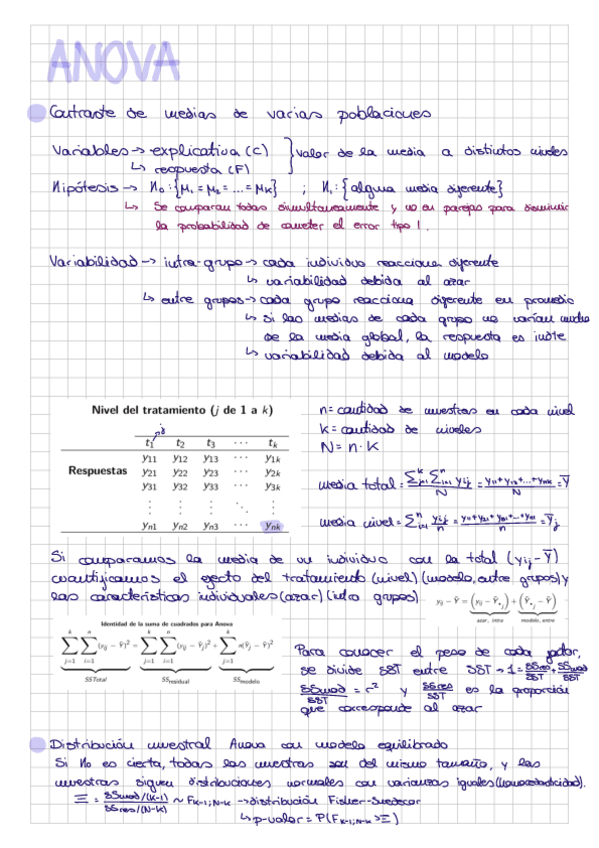 ANOVA
Contraste de medias de varias poblaciones
Variables → explicativa (C) } valor de la media a distintos niveles
↳ respuesta (F)
Hipótesis → H₀: {μ₁ = μ₂ = ... = μK} ; H₁: {alguna media diferente}
↳ Se comparan todas simultáneamente y no en parejas para disminuir
la probabilidad de cometer el error tipo I.
Variabilidad → intra-grupo → cada individuo reacciona diferente
↳ variabilidad debida al azar
↳ entre grupos → cada grupo reacciona diferente en promedio
↳ si las medias de cada grupo no varían mucho
de la media global, la respuesta es indte
↳ variabilidad debida al modelo
Nivel del tratamiento (j de 1 a k)
t₁ t₂ t₃ ⋯ tk
y₁₁ y₁₂ y₁₃ ⋯ y₁k
Respuestas y₂₁ y₂₂ y₂₃ ⋯ y₂k
y₃₁ y₃₂ y₃₃ ⋯ y₃k
⋮ ⋮ ⋮ ⋱ ⋮
yn1 yn2 yn3 ⋯ ynk
n = cantidad de muestras en cada nivel
k = cantidad de niveles
N = n · K
media total = Σⱼ₌₁ᵏ Σᵢ₌₁ⁿ yij / N = y₁₁+y₁₂+...+ynk / N = ȳ
media nivel = Σᵢ₌₁ⁿ yij / n = / n = ȳj
Si comparamos la media de un individuo con la total (yij - ȳ)
cuantificamos el efecto del tratamiento (nivel) (modelo, entre grupos) y
las características individuales (azar) (intra grupos)
yij − ȳ = (yij − ȳ•j) + (ȳ•j − ȳ)
azar, intra modelo, entre
Identidad de la suma de cuadrados para Anova
Σⱼ₌₁ᵏ Σᵢ₌₁ⁿ (yij − ȳ)² = Σⱼ₌₁ᵏ Σᵢ₌₁ⁿ (yij − ȳj)² + Σⱼ₌₁ᵏ n(ȳj − ȳ)²
SSTotal SSresidual SSmodelo
Para conocer el peso de cada factor,
se divide SST entre SST → 1 = SSres/SST + SSmod/SST
SSmod/SST = r² y SSres/SST es la proporción
que corresponde al azar
Distribución muestral Anova con modelo equilibrado
Si H₀ es cierta, todas las muestras son del mismo tamaño, y las
muestras siguen distribuciones normales con varianzas iguales (homocedasticidad).
Ξ = SSmod/(K-1) / SSres/(N-K) ~ F K-1; N-K → distribución Fisher-Snedecor
↳ p-valor = P(F K-1; N-K > Ξ)